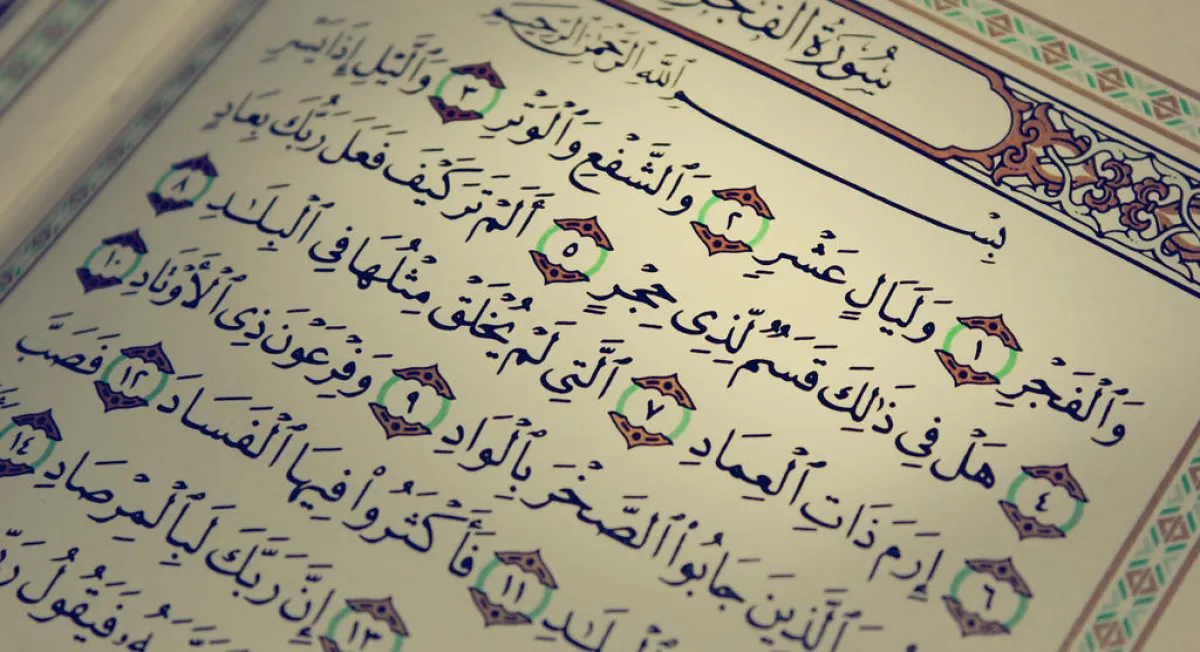 سُورَةُ الفَجْرِ
بِسْمِ ٱللَّهِ ٱلرَّحْمَٰنِ ٱلرَّحِيمِ
وَٱلْفَجْرِ ١ وَلَيَالٍ عَشْرٍ ٢ وَٱلشَّفْعِ وَٱلْوَتْرِ ٣ وَٱلَّيْلِ إِذَا يَسْرِ
٤ هَلْ فِي ذَٰلِكَ قَسَمٌ لِّذِي حِجْرٍ ٥ أَلَمْ تَرَ كَيْفَ فَعَلَ رَبُّكَ بِعَادٍ
٦ إِرَمَ ذَاتِ ٱلْعِمَادِ ٧ ٱلَّتِي لَمْ يُخْلَقْ مِثْلُهَا فِي ٱلْبِلَٰدِ ٨
ٱلَّذِينَ جَابُوا۟ ٱلصَّخْرَ بِٱلْوَادِ ٩ وَفِرْعَوْنَ ذِي ٱلْأَوْتَادِ ١٠
ٱلْبِلَٰدِ ١١ فَأَكْثَرُوا۟ فِيهَا ٱلْفَسَادَ ١٢ فَصَبَّ
١٣ إِنَّ رَبَّكَ لَبِٱلْمِرْصَادِ ١٤
فَيَقُولُ